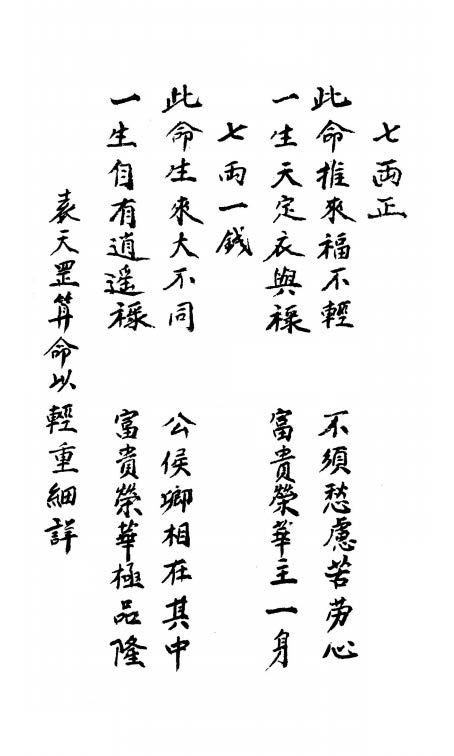 七兩正
此命推來福不輕　不須愁慮苦劳心
一生天定衣與祿　富貴榮華主一身
七兩一錢
此命生來大不同　公侯卿相在其中
一生自有逍遥祿　富貴榮華極品隆
袁天罡算命以輕重細詳